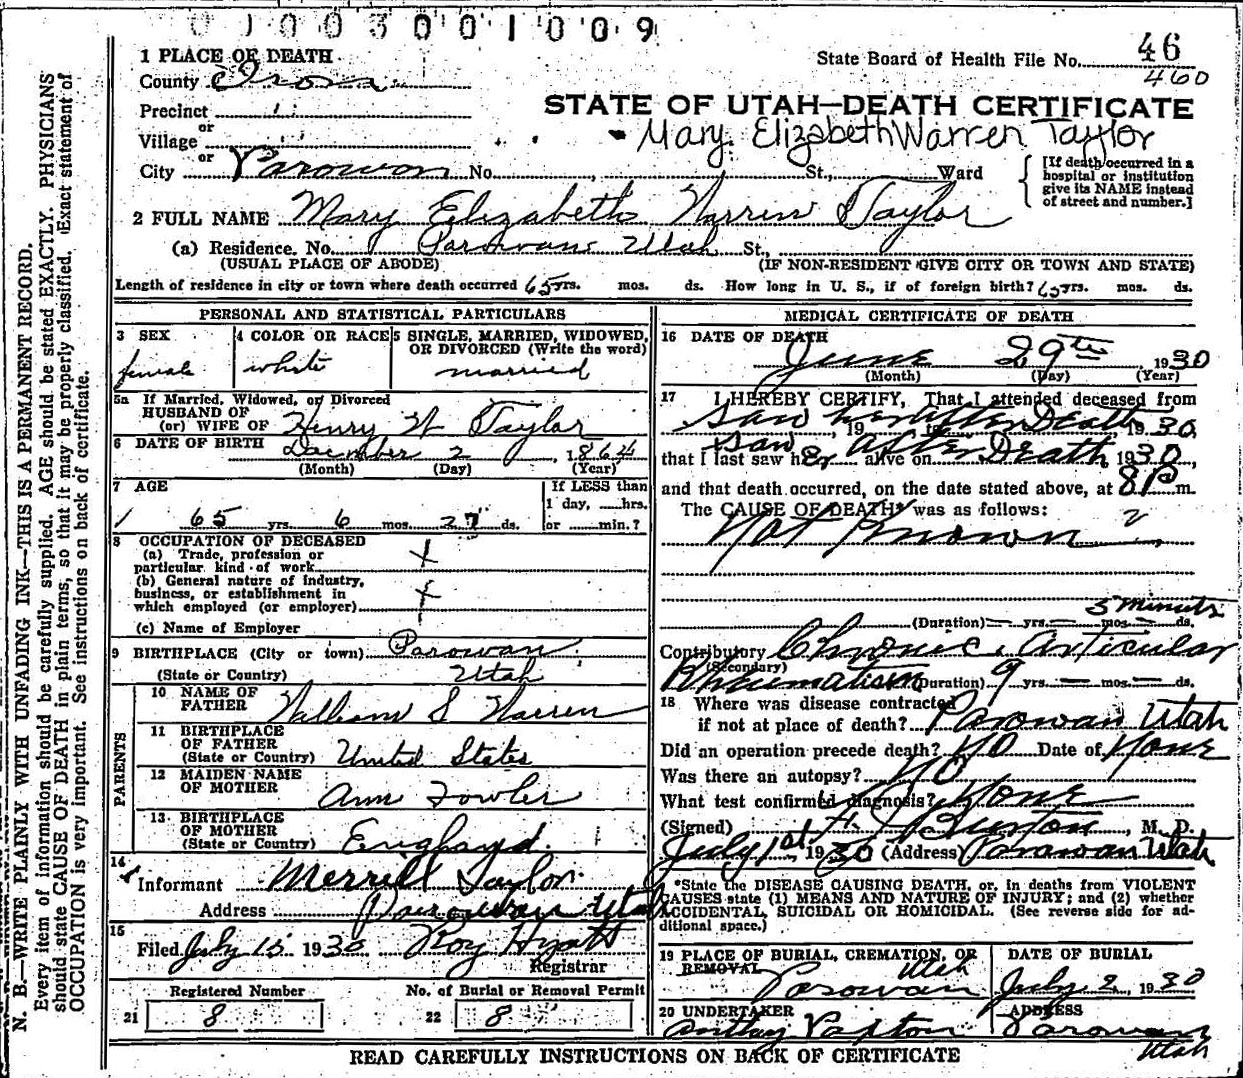 01003001009
1 PLACE OF DEATH
State Board of Health File No. 46
460
County Iron
STATE OF UTAH—DEATH CERTIFICATE
Precinct
Mary Elizabeth Warren Taylor
or
Village
or
City Parowan No. St., Ward
[If death occurred in a hospital or institution give its NAME instead of street and number.]
2 FULL NAME Mary Elizabeth Warren Taylor
(a) Residence. No. Parowan Utah St.,
(USUAL PLACE OF ABODE) (IF NON-RESIDENT GIVE CITY OR TOWN AND STATE)
Length of residence in city or town where death occurred 65 yrs. mos. ds. How long in U. S., if of foreign birth? 65 yrs. mos. ds.
PERSONAL AND STATISTICAL PARTICULARS
3 SEX
female
4 COLOR OR RACE
white
5 SINGLE, MARRIED, WIDOWED, OR DIVORCED (Write the word)
married
5a If Married, Widowed, or Divorced
HUSBAND OF
(or) WIFE OF Henry W Taylor
6 DATE OF BIRTH December 2, 1864
(Month) (Day) (Year)
7 AGE
65 yrs. 6 mos. 27 ds.
If LESS than
1 day, hrs.
or min.?
8 OCCUPATION OF DECEASED
(a) Trade, profession or
particular kind of work X
(b) General nature of industry,
business, or establishment in
which employed (or employer)
(c) Name of Employer
9 BIRTHPLACE (City or town) Parowan
(State or Country) Utah
PARENTS
10 NAME OF
FATHER William S Warren
11 BIRTHPLACE
OF FATHER
(State or Country) United States
12 MAIDEN NAME
OF MOTHER Ann Fowler
13 BIRTHPLACE
OF MOTHER
(State or Country) England
14
Informant Merrill Taylor
Address Parowan Utah
15
Filed July 15 1930 Roy Hyatt
Registrar
Registered Number No. of Burial or Removal Permit
21 8 22 8
MEDICAL CERTIFICATE OF DEATH
16 DATE OF DEATH
June 29th 1930
(Month) (Day) (Year)
17 I HEREBY CERTIFY, That I attended deceased from
Saw her after Death 1930,
Saw after Death
that I last saw her alive on 1930,
and that death occurred, on the date stated above, at 8 P m.
The CAUSE OF DEATH* was as follows:
Not Known
5 minutes
(Duration) yrs. mos. ds.
Contributory Chronic Articular
(Secondary)
Rheumatism (Duration) 9 yrs. mos. ds.
18 Where was disease contracted
if not at place of death? Parowan Utah
Did an operation precede death? No Date of None
Was there an autopsy? No
What test confirmed diagnosis? None
(Signed) Burton, M. D.
July 1st, 1930 (Address) Parowan Utah
*State the DISEASE CAUSING DEATH, or, in deaths from VIOLENT
CAUSES state (1) MEANS AND NATURE OF INJURY; and (2) whether
ACCIDENTAL, SUICIDAL OR HOMICIDAL. (See reverse side for ad-
ditional space.)
19 PLACE OF BURIAL, CREMATION, OR
REMOVAL Utah
Parowan
DATE OF BURIAL
July 2, 1930
20 UNDERTAKER
Anthny Paxton
ADDRESS
Parowan
Utah
READ CAREFULLY INSTRUCTIONS ON BACK OF CERTIFICATE
N. B.—WRITE PLAINLY WITH UNFADING INK—THIS IS A PERMANENT RECORD.
Every item of information should be carefully supplied. AGE should be stated EXACTLY. PHYSICIANS
should state CAUSE OF DEATH in plain terms, so that it may be properly classified. Exact statement of
OCCUPATION is very important. See instructions on back of certificate.